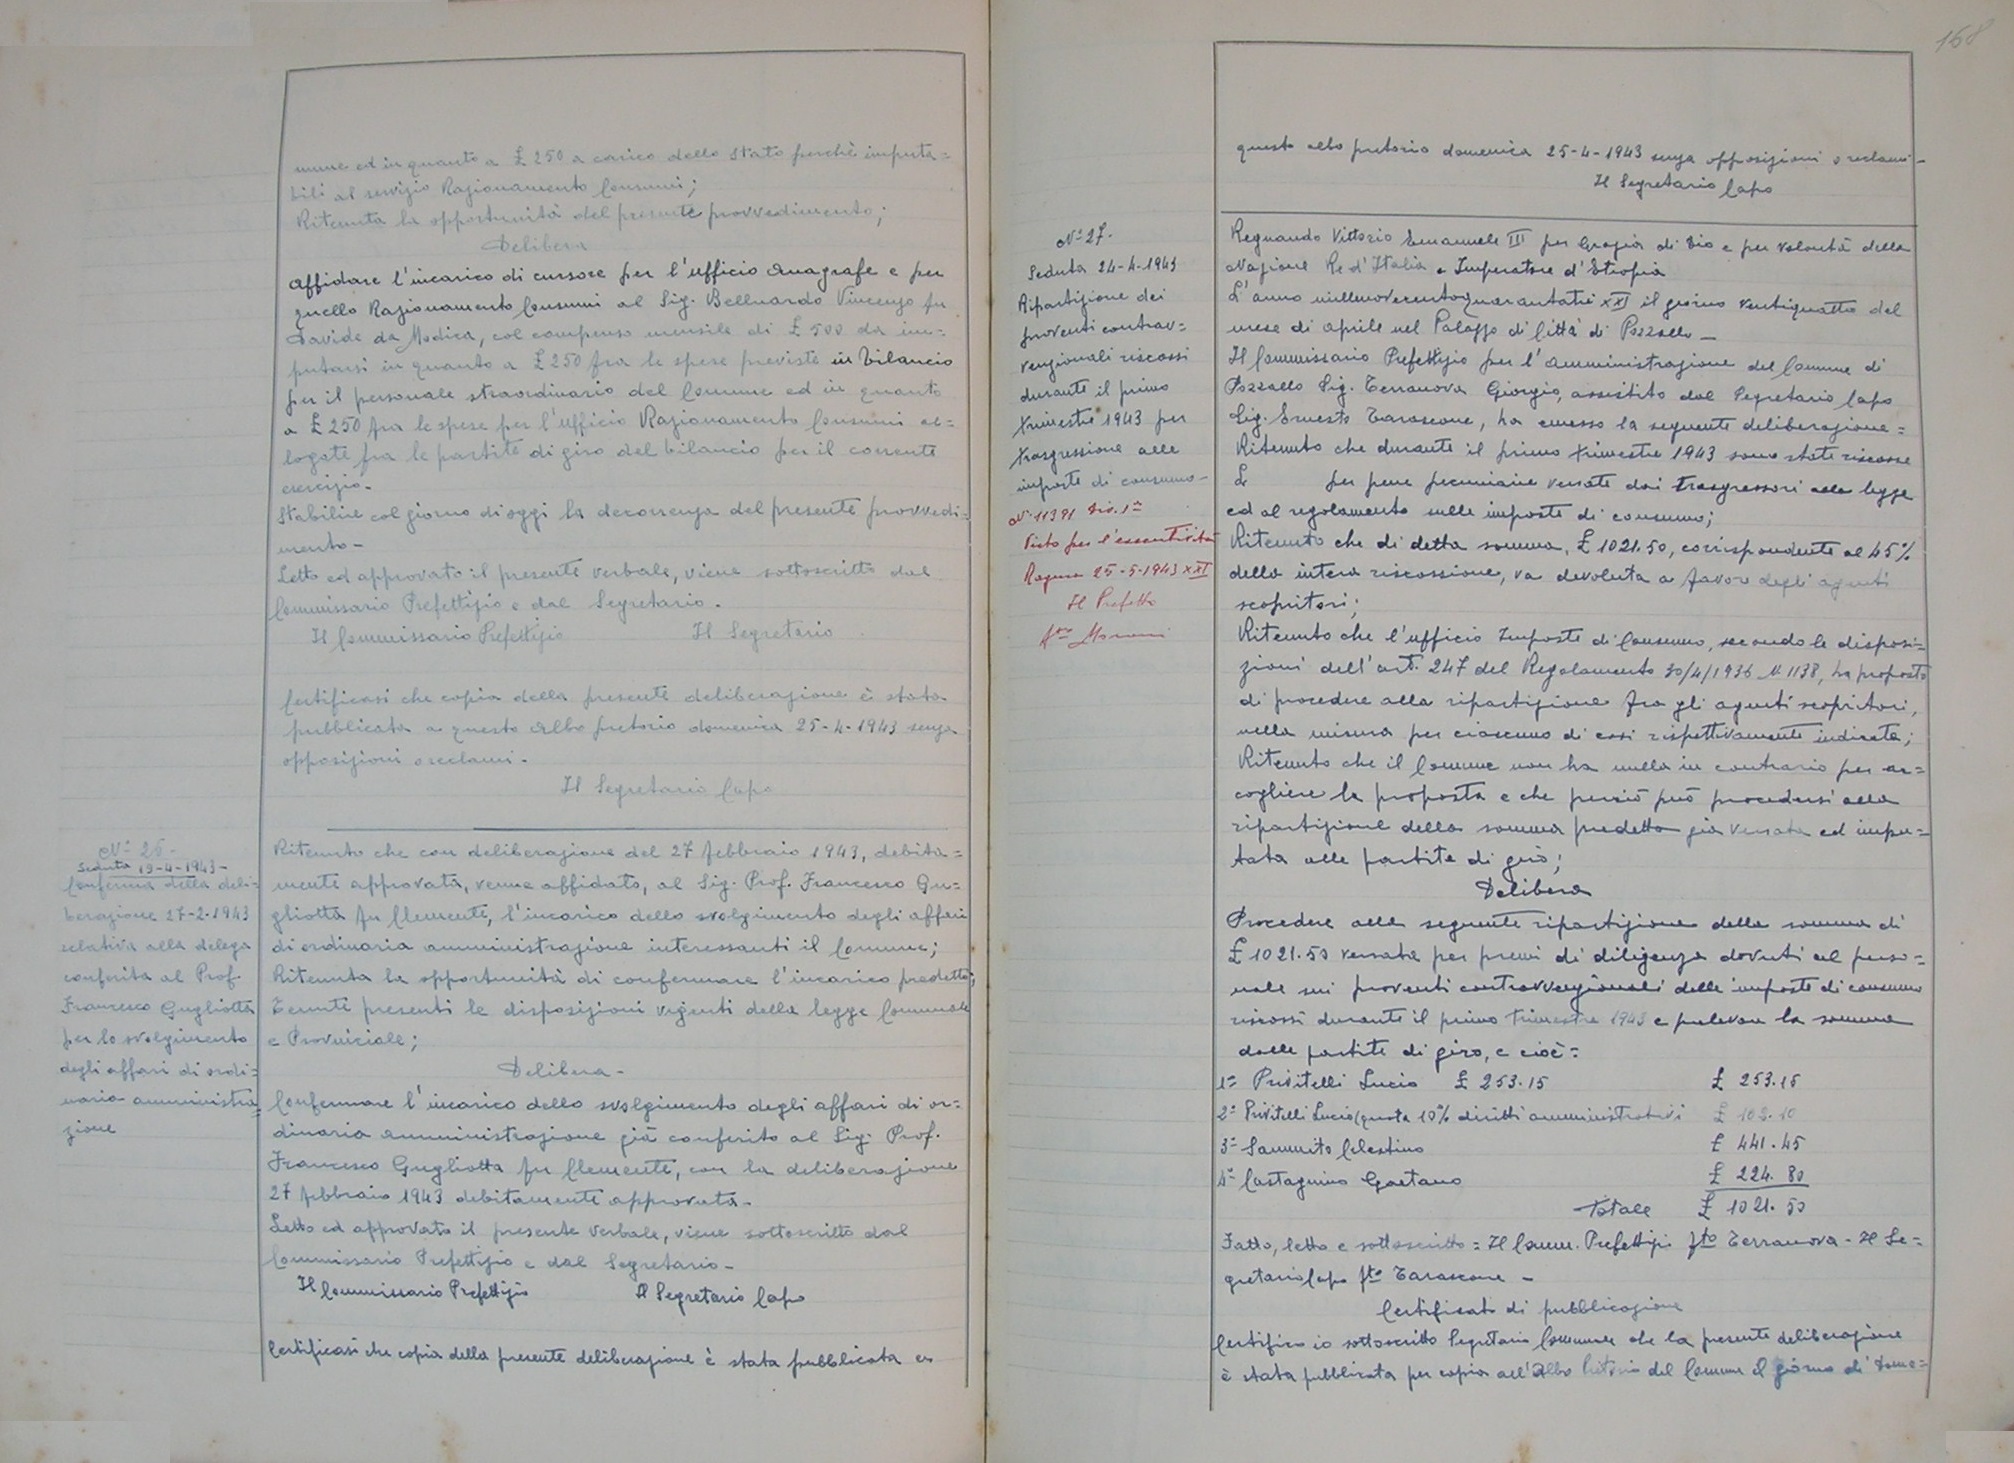 mune ed in quanto a £ 250 a carico dello Stato perchè imputa=
bili al servizio Razionamento Consumi;
Ritenuta la opportunità del presente provvedimento;
Delibera
Affidare l'incarico di cursore per l'ufficio Anagrafe e per
quello Razionamento Consumi al Sig. Belluardo Vincenzo fu
Davide da Modica, col compenso mensile di £ 500 da im=
putarsi in quanto a £ 250 fra le spese previste in bilancio
per il personale straordinario del Comune ed in quanto
a £ 250 fra le spese per l'ufficio Razionamento Consumi al=
logate fra le partite di giro del bilancio per il corrente
esercizio.-
Stabilire col giorno di oggi la decorrenza del presente provvedi=
mento-
Letto ed approvato il presente verbale, viene sottoscritto dal
Commissario Prefettizio e dal Segretario.
Il Commissario Prefettizio Il Segretario
Certificasi che copia della presente deliberazione è stata
pubblicata a questo Albo pretorio domenica 25-4-1943 senza
opposizioni o reclami.-
Il Segretario Capo
N° 26-
Seduta 19-4-1943-
Conferma della deli=
berazione 27-2-1943
relativa alla delega
conferita al Prof.
Francesco Gugliotta
per lo svolgimento
degli affari di ordi=
naria amministra=
zione
Ritenuto che con deliberazione del 27 febbraio 1943, debita=
mente approvata, venne affidato, al Sig. Prof. Francesco Gu=
gliotta fu Clemente, l'incarico dello svolgimento degli affari
di ordinaria amministrazione interessanti il Comune;
Ritenuta la opportunità di confermare l'incarico predetto;
Tenute presenti le disposizioni vigenti della legge Comunale
e Provinciale;
Delibera-
Confermare l'incarico dello svolgimento degli affari di or=
dinaria amministrazione già conferito al Sig. Prof.
Francesco Gugliotta fu Clemente, con la deliberazione
27 febbraio 1943 debitamente approvata-
Letto ed approvato il presente verbale, viene sottoscritto dal
Commissario Prefettizio e dal Segretario-
Il Commissario Prefettizio Il Segretario Capo
Certificasi che copia della presente deliberazione è stata pubblicata a
168
questo albo pretorio domenica 25-4-1943 senza opposizioni o reclami-
Il Segretario Capo
N° 27.
Seduta 24-4-1943
Ripartizione dei
proventi contrav=
venzionali riscossi
durante il primo
trimestre 1943 per
trasgressione alle
imposte di consumo-
N° 11391 Div. 1ª
Visto per l'esecutività
Ragusa 25-5-1943 XXI
Il Prefetto
fto
Regnando Vittorio Emanuele III per Grazia di Dio e per volontà della
Nazione Re d'Italia e Imperatore d'Etiopia
L'anno millenovecentoquarantatre XXI il giorno ventiquattro del
mese di aprile nel Palazzo di Città di Pozzallo-
Il Commissario Prefettizio per l'amministrazione del Comune di
Pozzallo Sig. Terranova Giorgio, assistito dal Segretario Capo
Sig. Ernesto Tarascone, ha emesso la seguente deliberazione=
Ritenuto che durante il primo trimestre 1943 sono state riscosse
L per pene pecuniarie versate dai trasgressori alla legge
ed al regolamento sulle imposte di consumo;
Ritenuto che di detta somma, £ 1021.50, corrispondente al 45%
della intera riscossione, va devoluta a favore degli agenti
scopritori;
Ritenuto che l'ufficio Imposte di Consumo, secondo le disposi=
zioni dell'art. 247 del Regolamento 30/4/1936 N. 1138, ha proposto
di procedere alla ripartizione fra gli agenti scopritori,
nella misura per ciascuno di essi rispettivamente indicata;
Ritenuto che il Comune non ha nulla in contrario per ac=
cogliere la proposta e che perciò può procedersi alla
ripartizione della somma predetta già versata ed impu=
tata alle partite di giro;
Delibera
Procedere alla seguente ripartizione della somma di
£ 1021.50 versata per premi di diligenza dovuti al perso=
nale sui proventi contravvenzionali delle imposte di consumo
riscossi durante il primo trimestre 1943 e prelevare la somma
dalle partite di giro, e cioè=
1°= Privitelli Lucio £ 253.15 £ 253.15
2° Privitelli Lucio (quota 10% diritti amministrativi £ 102.10
3° Sammito Celestino £ 441.45
4° Castagnino Gaetano £ 224.80
Totale £ 1021.50
Fatto, letto e sottoscritto = Il Comm. Prefettizio fto Terranova - Il Se=
gretario Capo fto Tarascone -
Certificato di pubblicazione
Certifico io sottoscritto Segretario Comunale che la presente deliberazione
è stata pubblicata per copia all'Albo Pretorio del Comune il giorno di Dome=